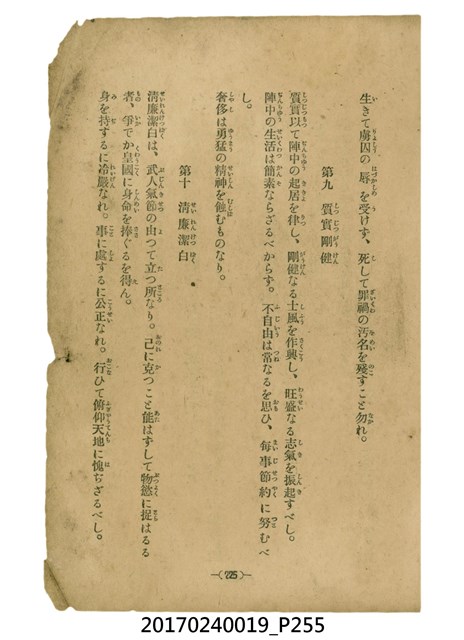 生きて虜囚の辱を受けず、死して罪禍の汚名を殘すこと勿れ。
第九　質實剛健
質實以て陣中の起居を律し、剛健なる士風を作興し、旺盛なる志氣を振起すべし。
陣中の生活は簡素ならざるべからず。不自由は常なるを思ひ、每事節約に努むべ
し。
奢侈は勇猛の精神を蝕むものなり。
第十　淸廉潔白
淸廉潔白は、武人氣節の由つて立つ所なり。己に克つこと能はずして物慾に捉はるる
者、爭でか皇國に身命を捧ぐるを得ん。
身を持するに冷嚴なれ。事に處するに公正なれ。行ひて俯仰天地に愧ぢざるべし。
—(225)—
20170240019_P255